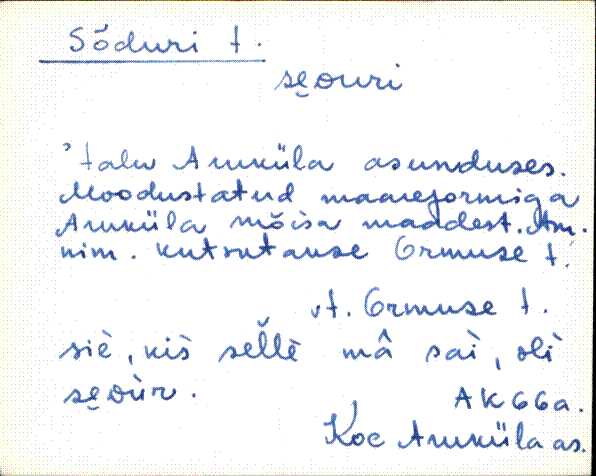 Sõduri t.
sęduri
talu Aruküla asunduses.
Moodustatud maareformiga
Aruküla mõisa maadest. Am.
nim. kutsutakse Ormuse t.
vt. Ormuse t.
siè, kis sellè mâ sai, oli
sędùr.
AK66a.
Koe Aruküla as.